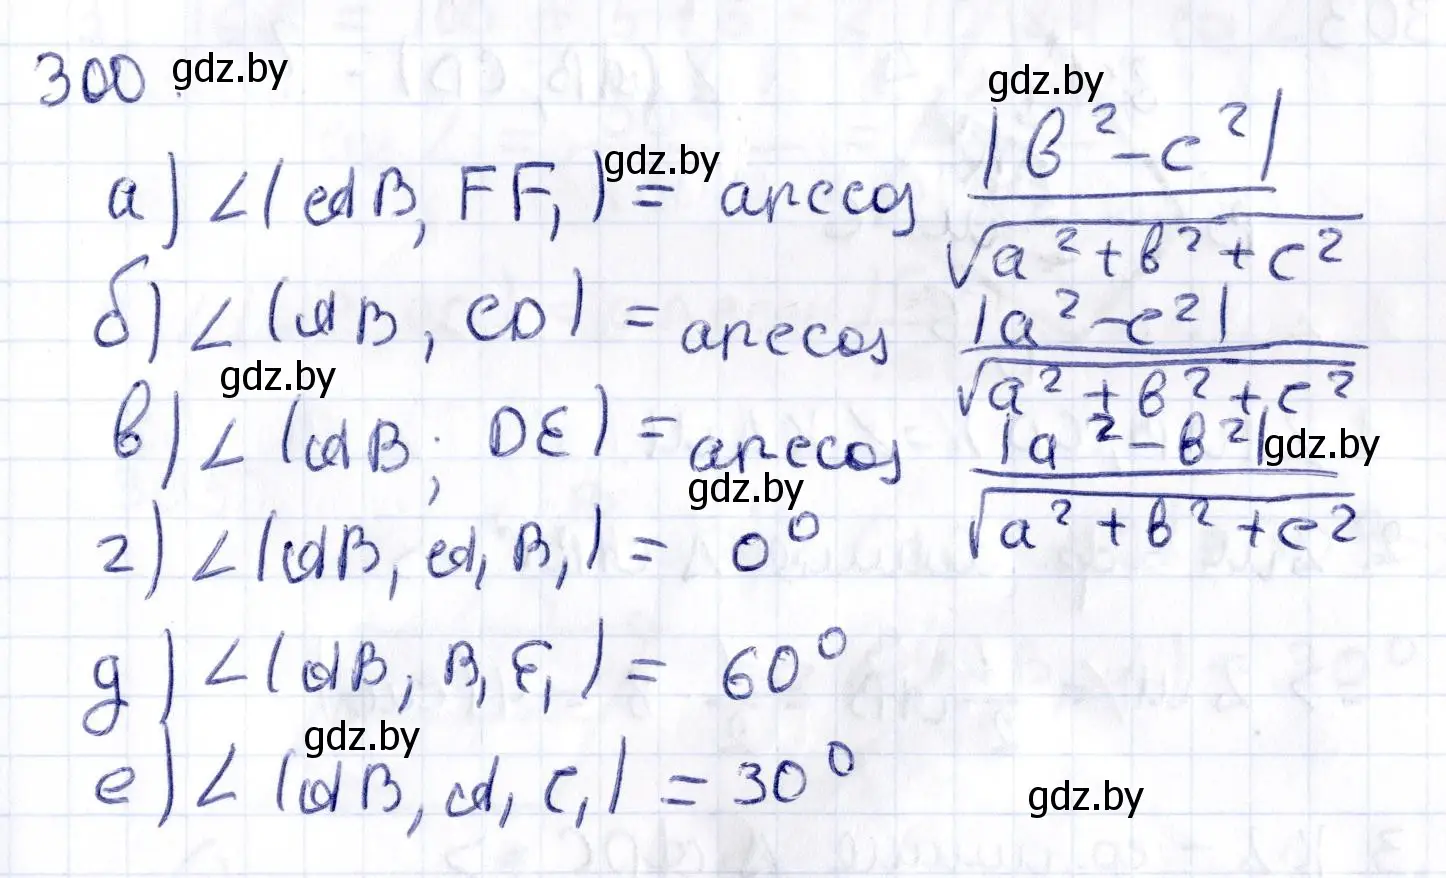 300. gdz.by
gdz.by
а) ∠(AB, FF₁) = arccos |b² - c²| / √(a² + b² + c²)
gdz.by
б) ∠(AB, CD) = arccos |a² - c²| / √(a² + b² + c²)
gdz.by
в) ∠(AB; DE) = arccos |a² - b²| / √(a² + b² + c²)
gdz.by
gdz.by
г) ∠(AB, A₁B₁) = 0°
д) ∠(AB, B₁E₁) = 60°
gdz.by
е) ∠(AB, A₁C₁) = 30°
gdz.by